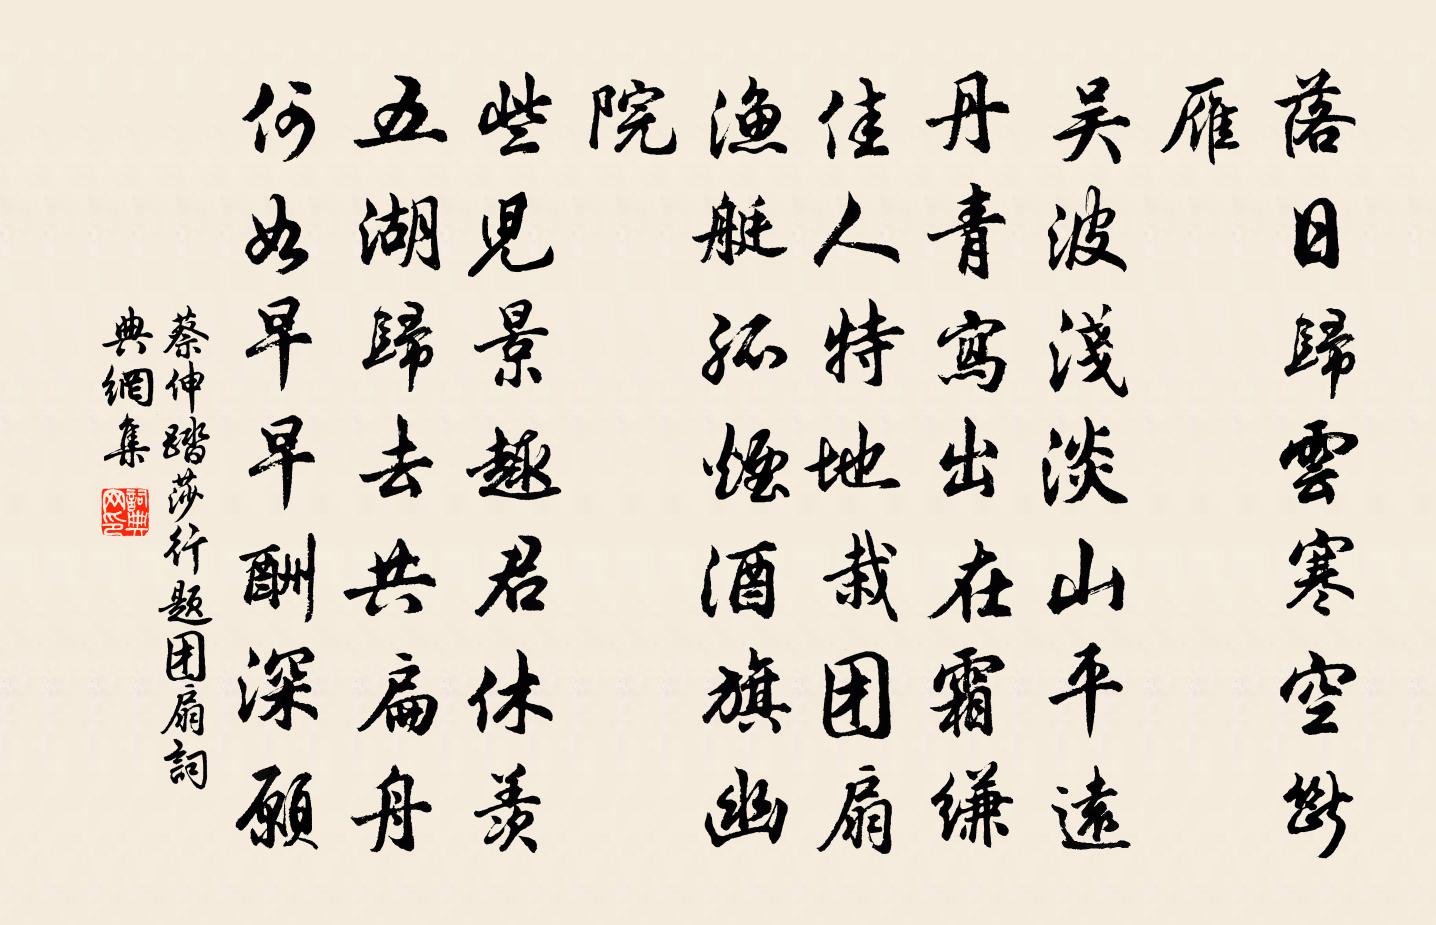 落日歸雲寒空斷
雁
吴波淺淡山平遠
丹青寫出在霜縑
佳人特地裁团扇
漁艇孤煙酒旗幽
院
些兒景趣君休羨
五湖歸去共扁舟
何如早早酬深願
蔡伸踏莎行题团扇詞
典網集
詞典
网印